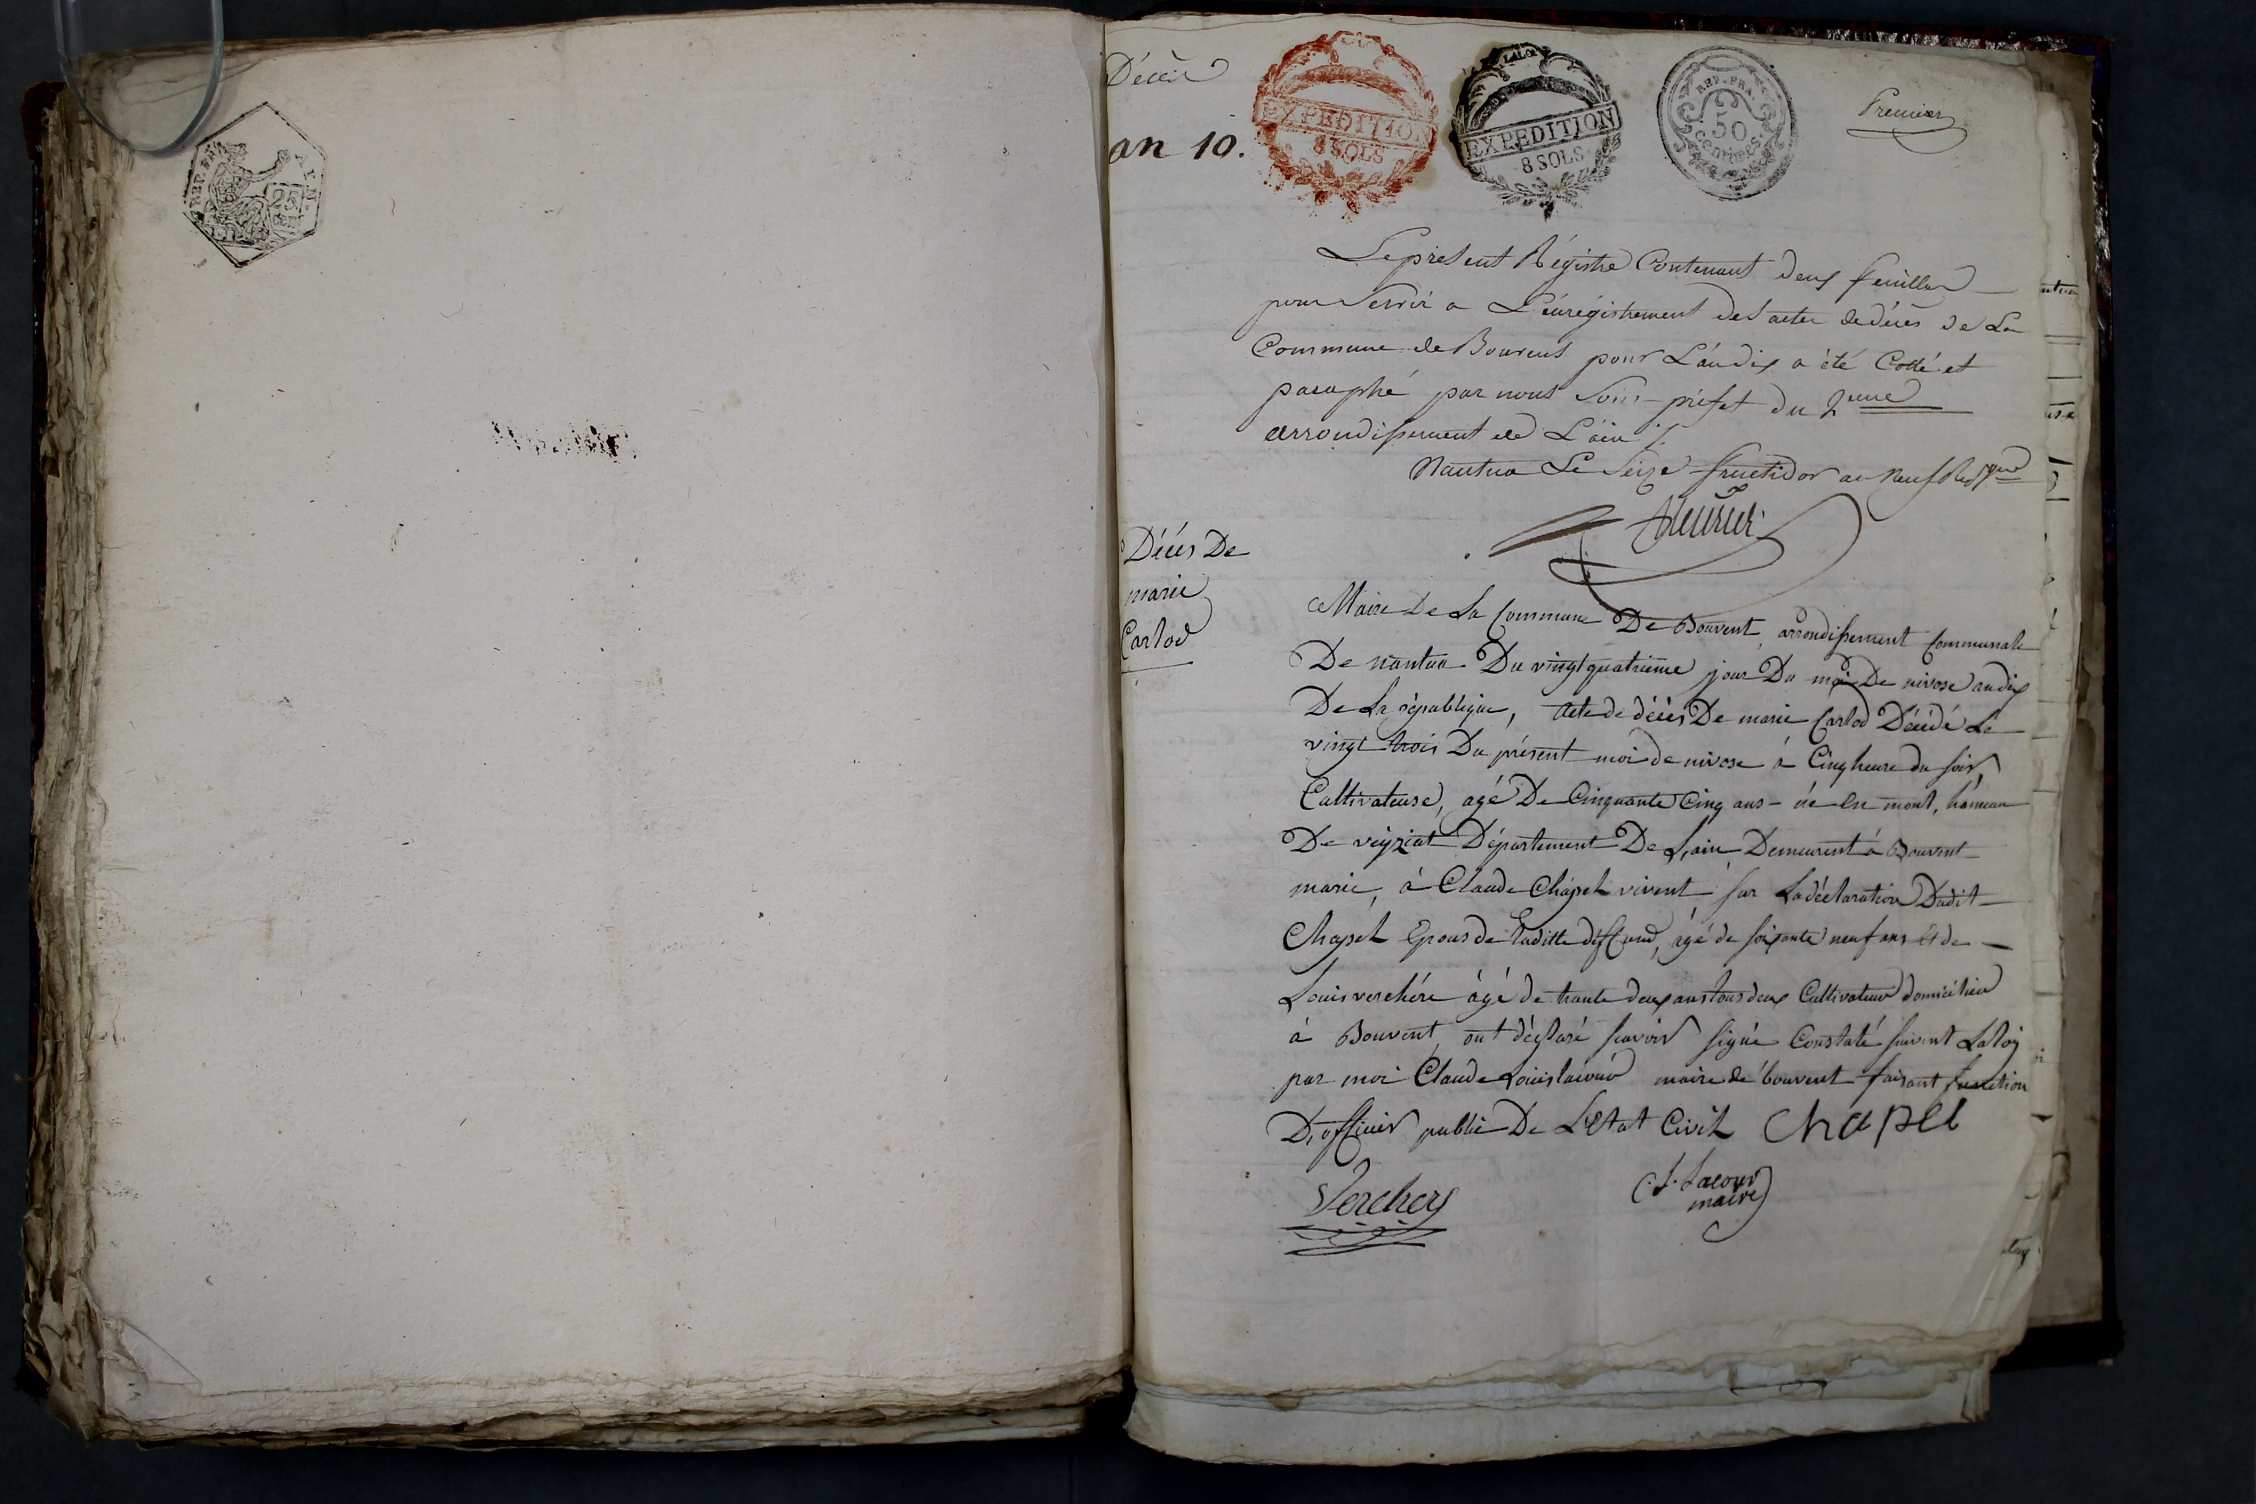 REP. FRA.
25
AIN.
Décès
an 10.
EXPEDITION
8 SOLS
LA LOI
EXPEDITION
8 SOLS
REP. FRA.
50
centimes
Premier
Le présent Régistre Contenant deux feuilles
pour Servir a L'enrégistrement des actes de décès de La
Commune de Bouvent pour L'an dix a été Cotté et
paraphé par nous Sous-préfet du 2eme
arrondissement de L'ain
Nantua Le Seize fructidor an Neuf
Décès De
marie
Carlod
Maire De La Commune De Bouvent arrondissement Communale
De nantua Du vingt quatrieme jour Du moi De nivose an dix
De La république, Acte de décès De marie Carlod Décédé Le
vingt trois Du présent moi de nivose à Cinq heure du soir,
Cultivateuse, agé De Cinquante Cinq ans - née En mont, hameau
De veyziat Département De L'ain Demeurent à Bouvent
marie, à Claude Chapel vivent, sur La déclaration Dudit
Chapel Epous de Laditte, agé de soixante neuf ans et de
Louis verchére àgé de trante deux ans tous deux Cultivateur domicilier
à Bouvent, ont déclaré scavoir signé Constaté suivent La loy
par moi Claude Louis lacour maire de bouvent faisant fonction
D'officier public De L'Etat Civil Chapel
Verchery
C. L. Lacour
maire